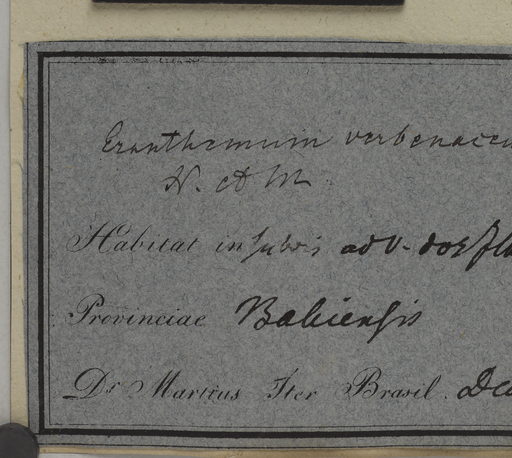 Eranthemum verbenaceu
N. et M.
Habitat in sylvis ad V. dos Il
Provinciae Bahiensis
Dr Martius Iter Brasil. Dec